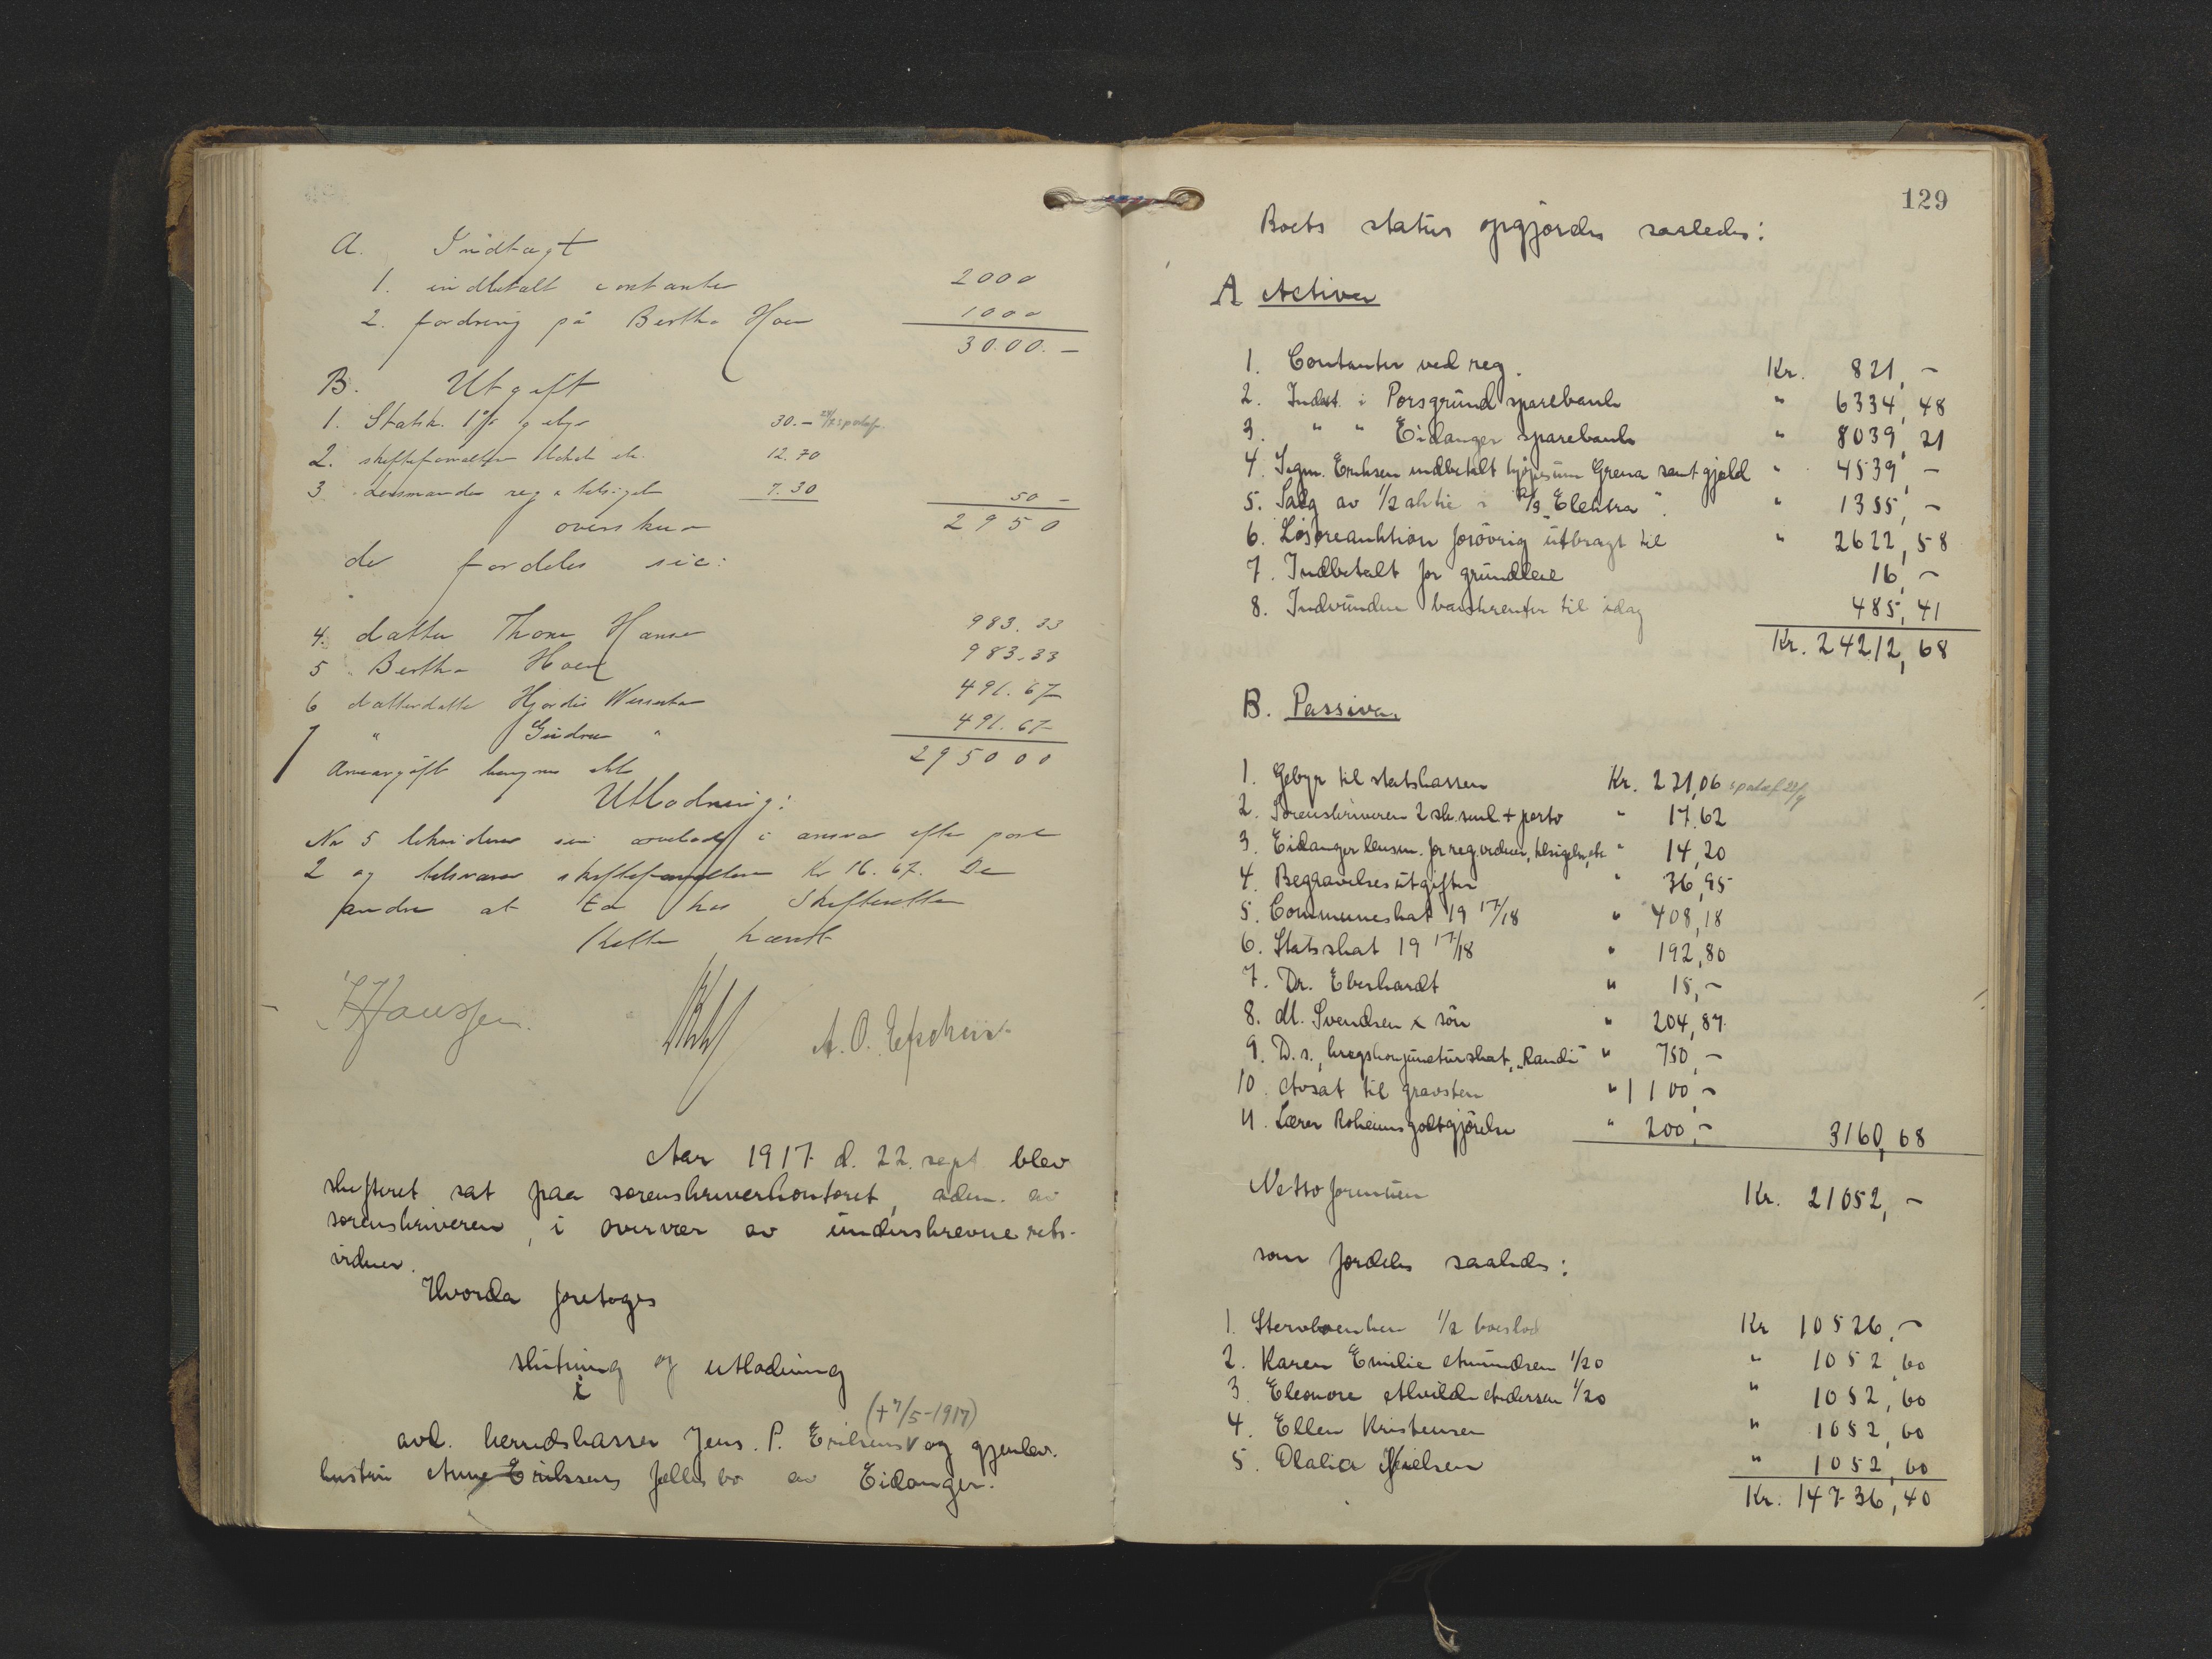 A. Indtægt
1. indbetalt contanter 2000
2. fordring på Bertha Hoen 1000
3000.-
B. Utgift
1. Statsk. 1% gebyr 30.-
2. skifteforvalteren 12.70
3. Lensmanden reg & tilsigelse 7.30 50 -
overskud 2950
der fordeles sig:
4. datter Thora Hansen 983.33
5 Bertha Hoen 983.33
6 datterdatter Hjørdis 491.67
7 " Gudrun " 491.67
Arveavgift beregnes ikke 2950 00
Utlodning:
No 5 likviderer sin arvelod i ansvar efter post
2 og tilsvarer skifteforvalteren Kr 16.67. De
andre at ta hos Skifteretten
Retten hævet
Hanssen
A. O.
Aar 1917 d. 22. sept. blev
skifteret sat paa sorenskriverkontoret, adm. av
sorenskriveren, i overvær av underskrevne rets-
vidner.
Hvorda foretoges
slutning og utlodning
i
(+ 7/5-1917)
avd. herredskasser Jens. P. Eriksens v og gjenlev.
hustru Anne Erikssens fælles bo av Eidanger.
129
Boets status opgjordes saaledes:
A Activa
1. Contanter ved reg. Kr. 821,-
2. Indest. i Porsgrund sparebank " 6334,48
3. " " Eidanger sparebank " 8039,21
4. Ingm. Eriksen indbetalt kjøpesum Grena samt gjæld " 4539,-
5. Salg av 1/2 aktie i A/S "Elektra". " 1355,-
6. Løsøreauktion forøvrig utbragt til " 2622,58
7. Indbetalt for grundleie 16,-
8. Indvundne bankrenter til idag 485,41
Kr. 24212,68
B. Passiva.
1. Gebyr til statskassen Kr. 221,06
2. Sorenskriveren 2 sk.saml. + porto " 17,62
3. Eidanger lensm. for reg. vidner, tilsigelse, etc " 14,20
4. Begravelsesutgifter " 36,95
5. Communeskat 19 17/18 " 408,18
6. Statsskat 19 17/18 " 192,80
7. Dr. Eberhardt " 15,-
8. M. Svendsen & søn " 204,87
9. D.s. krigskonjuncturskat "Randi" " 750,-
10. Avsat til gravsten " 1100,-
11. Lærer Roheims godtgjørelse " 200,- 3160,68
Netto formuen Kr. 21052,-
som fordeles saaledes:
1. Stervboenken 1/2 boeslod Kr 10526,-
2. Karen Emilie Amundsen 1/20 " 1052,60
3. Eleonore Alvilde Andersen 1/20 " 1052,60
4. Ellen Kristensen " 1052,60
5. Olalia Nielsen " 1052,60
Kr. 14736,40